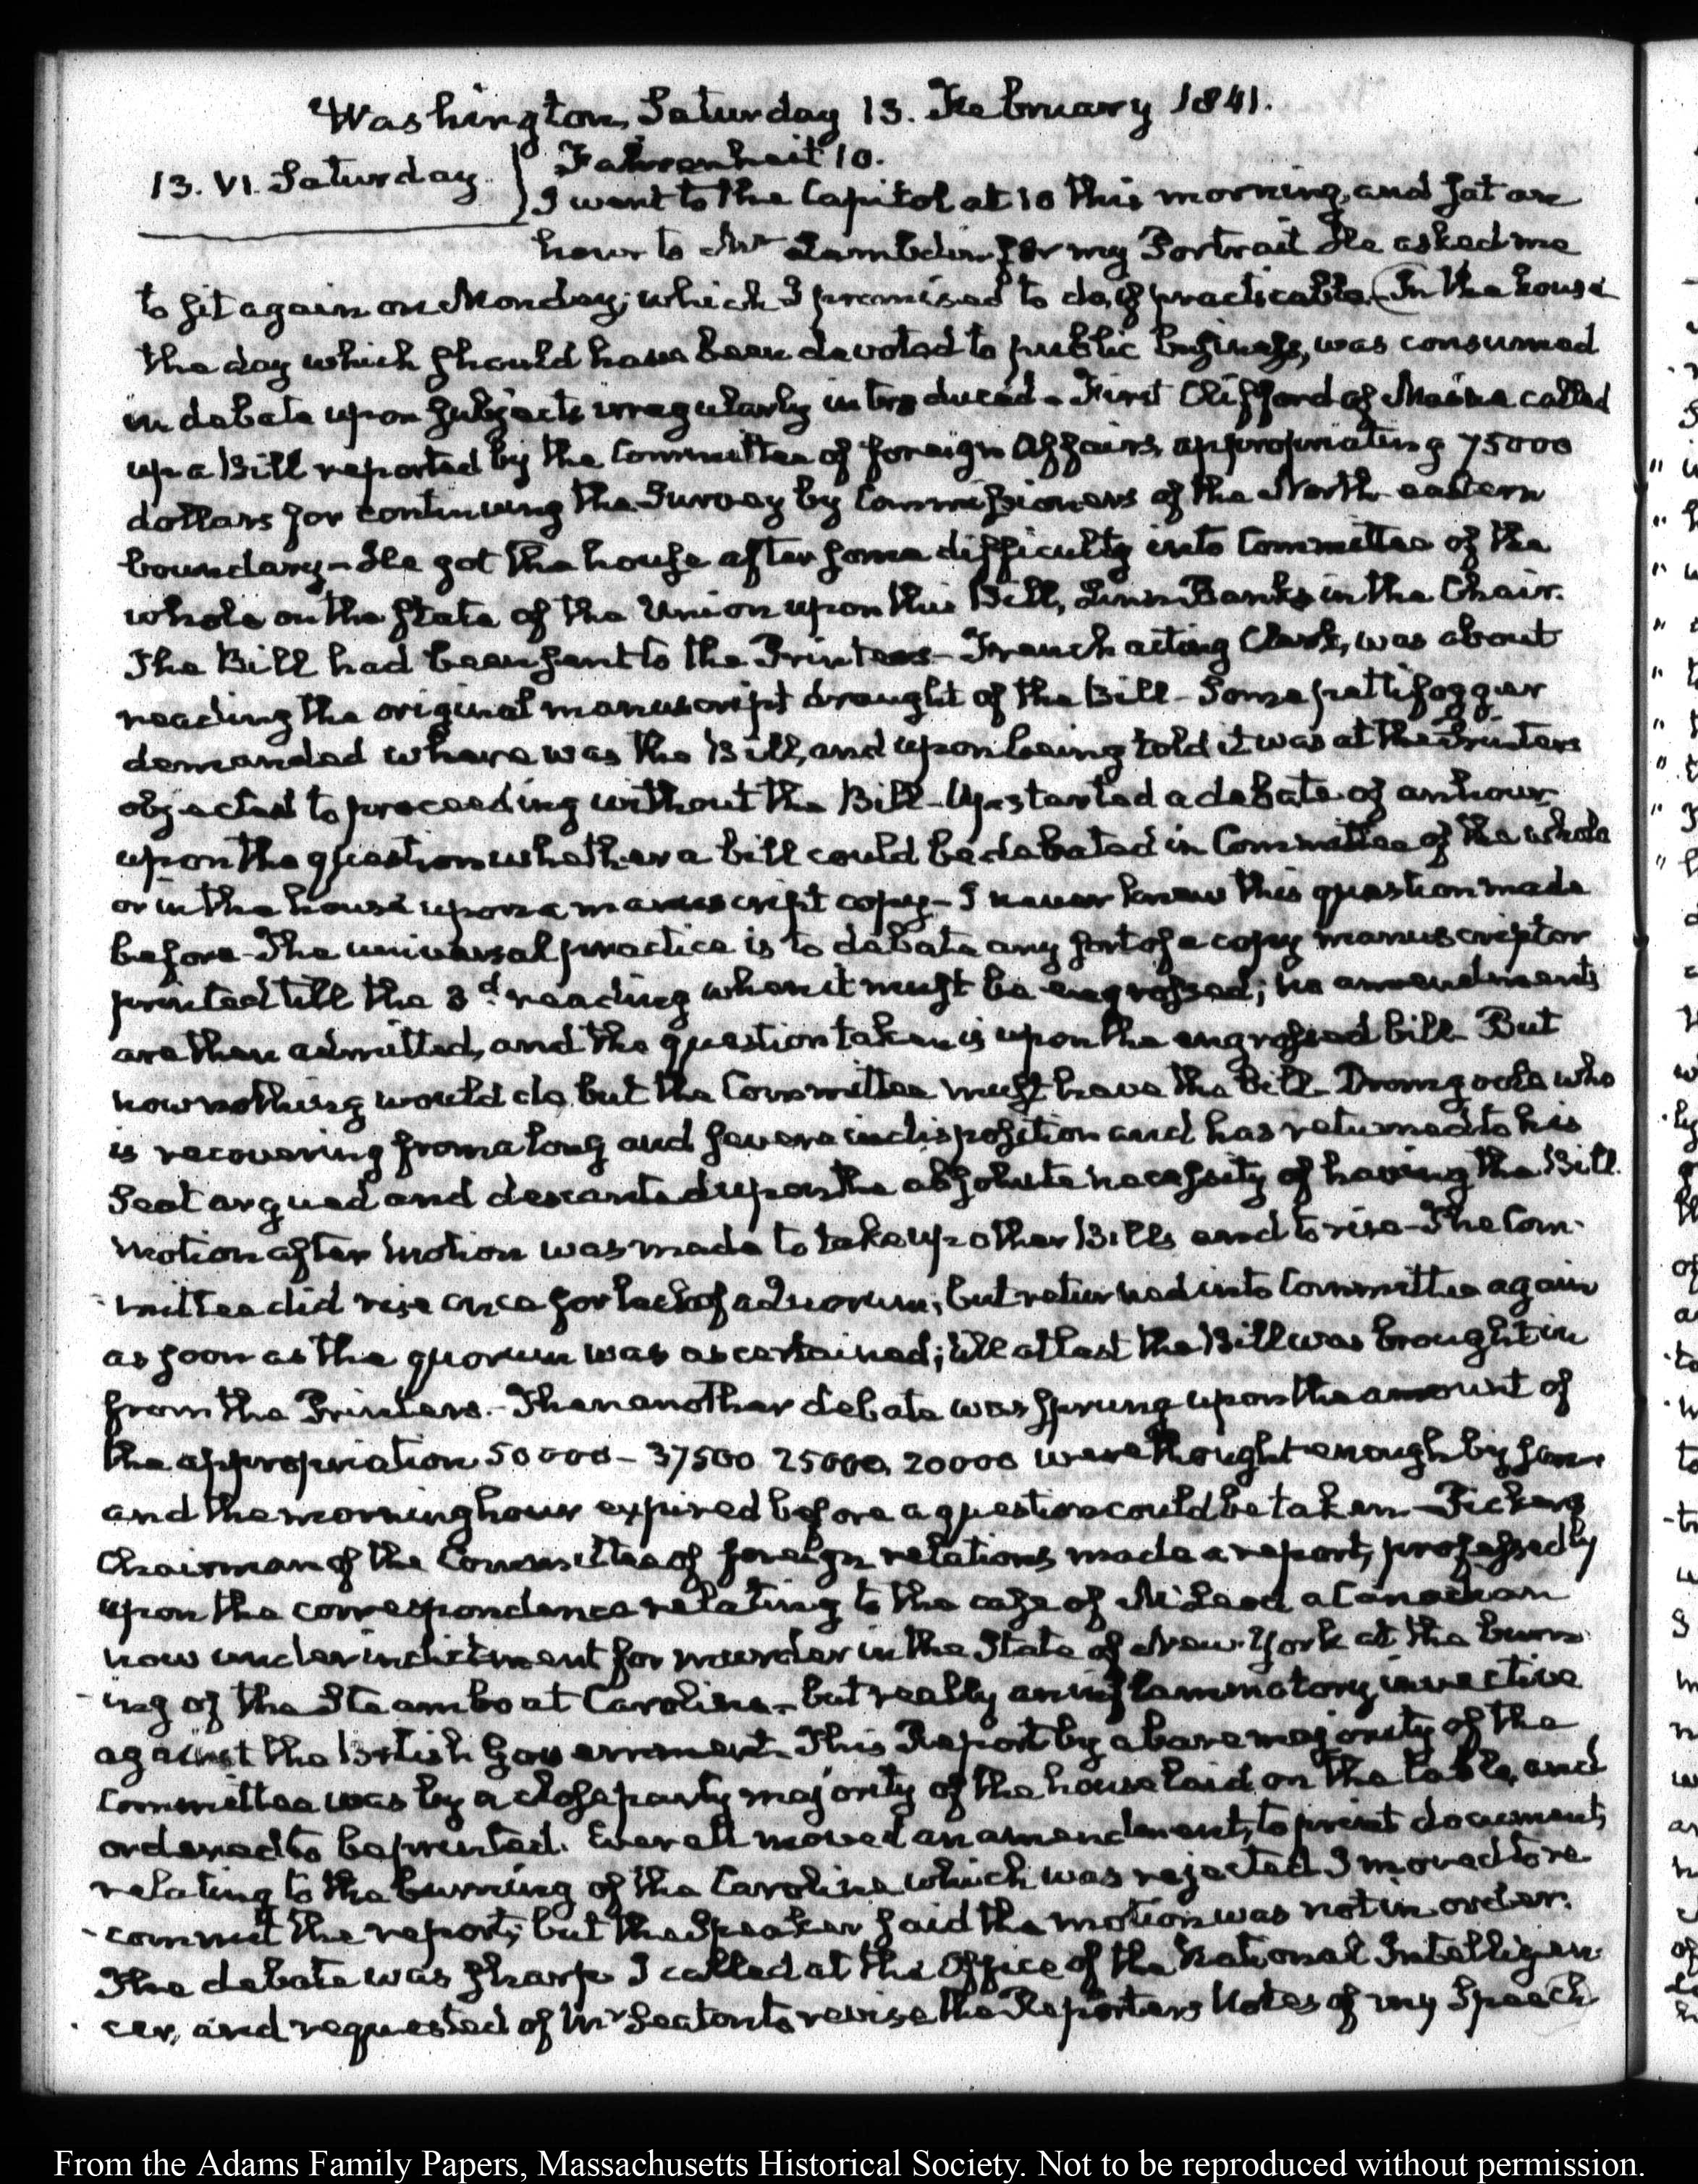 Washington, Saturday 13. February 1841.
13. VI. Saturday. } Fahrenheit 10.
I went to the Capitol at 10 this morning, and sat an
hour to Mr Lambdin for my Portrait He asked me
to sit again on Monday; which I promised to do, if practicable. (In the house
the day which should have been devoted to public business, was consumed
in debate upon subjects irregularly introduced - First Clifford of Maine called
up a Bill reported by the Committee of foreign Affairs, appropriating 75000
dollars for continuing the Survey by Commissioners of the North-eastern
boundary - He got the house after some difficulty into Committee of the
whole on the state of the Union upon this Bill, Linn Banks in the Chair.
The Bill had been sent to the Printers - French acting Clerk, was about
reading the original manuscript draught of the Bill - Some pettifogger
demanded where was the Bill, and upon being told it was at the Printers
objected to proceeding without the Bill - Up started a debate of an hour
upon the question whether a bill could be debated in Committee of the whole
or in the house upon a manuscript copy - I never knew this question made
before - The universal practice is to debate any sort of a copy manuscript or
printed till the 3d reading when it must be engrossed; no amendments
are then admitted, and the question taken is upon the engrossed bill - But
now nothing would do but the Committee must have the Bill - Dromgoole who
is recovering from a long and severe indisposition and has returned to his
Seat argued and descanted upon the absolute necessity of having the Bill.
Motion after Motion was made to take up other Bills and to rise - The Com-
-mittee did rise once for lack of a Quorum; but returned into Committee again
as soon as the quorum was ascertained; till at last the Bill was brought in
from the Printers. - Then another debate was sprung upon the amount of
the appropriation 50000 - 37500 25000, 20000 were thought enough by some
and the morning hour expired before a question could be taken - Pickens
Chairman of the Committee of foreign relations made a report, professedly
upon the correspondence relating to the case of McLeod a Canadian
now under indictment for murder in the State of New-York at the burn
-ing of the Steamboat Caroline - but really an inflammatory invective
against the British Government. This Report by a bare majority of the
Committee was by a close party majority of the house laid on the table, and
ordered to be printed. Everett moved an amendment, to print documents
relating to the burning of the Caroline which was rejected I moved to re
-commit the report; but the Speaker said the motion was not in order.
The debate was sharp. I called at the Office of the National Intelligen
cer, and requested of Mr Seaton to revise the Reporters Notes of my Speech
From the Adams Family Papers, Massachusetts Historical Society. Not to be reproduced without permission.